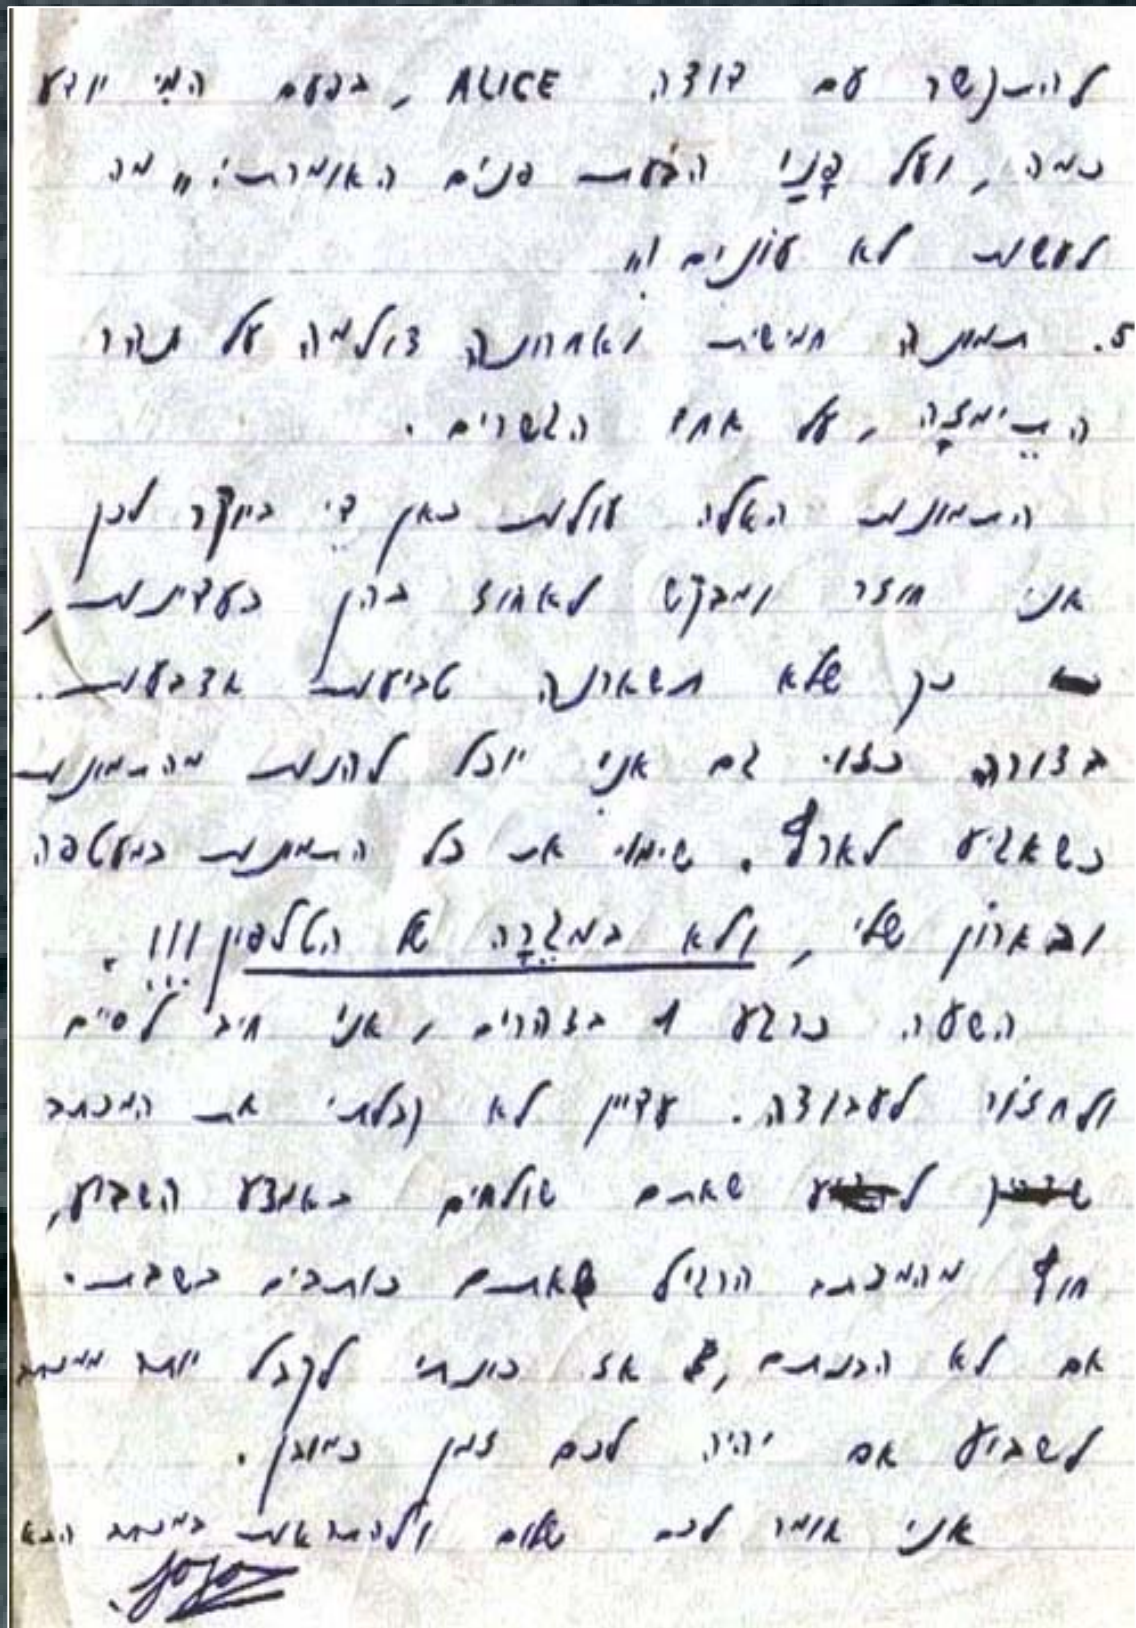 להתקשר עם דודה ALICE, בפעם המי יודע
כמה, ועל פָּנַי הבעת פנים האומרת: "מה
לעשות לא עונים!"
5. תמונה חמישית ואחרונה צולמה על נהר
התֵימְזָה, על אחד הגשרים.
התמונות האלה עולות כאן דֵי ביוקר לכן
אני חוזר ומבקש לאחוז בהן בעדינות,
כך שלא תשארנה טביעות אצבעות.
בצורה כזו גם אני יוכל להנות מהתמונות
כשאגיע לארץ. שימו את כל התמונות במעטפה
ובארון שלי, ולא במגֵרָה של הטלפון!!!.
השעה כרגע 1 בצהרים, אני חיב לסיים
ולחזור לעבודה. עדיין לא קבלתי את המכתב
שאתם שולחים באמצע השבוע,
חוץ מהמכתב הרגיל שאתם כותבים בשבת.
אם לא הבנתם, אז כונתי לקבל יותר ממכתב
לשבוע אם יהיה לכם זמן כמובן.
אני אומר לכם שלום ולהתראות במכתב הבא
JoJo